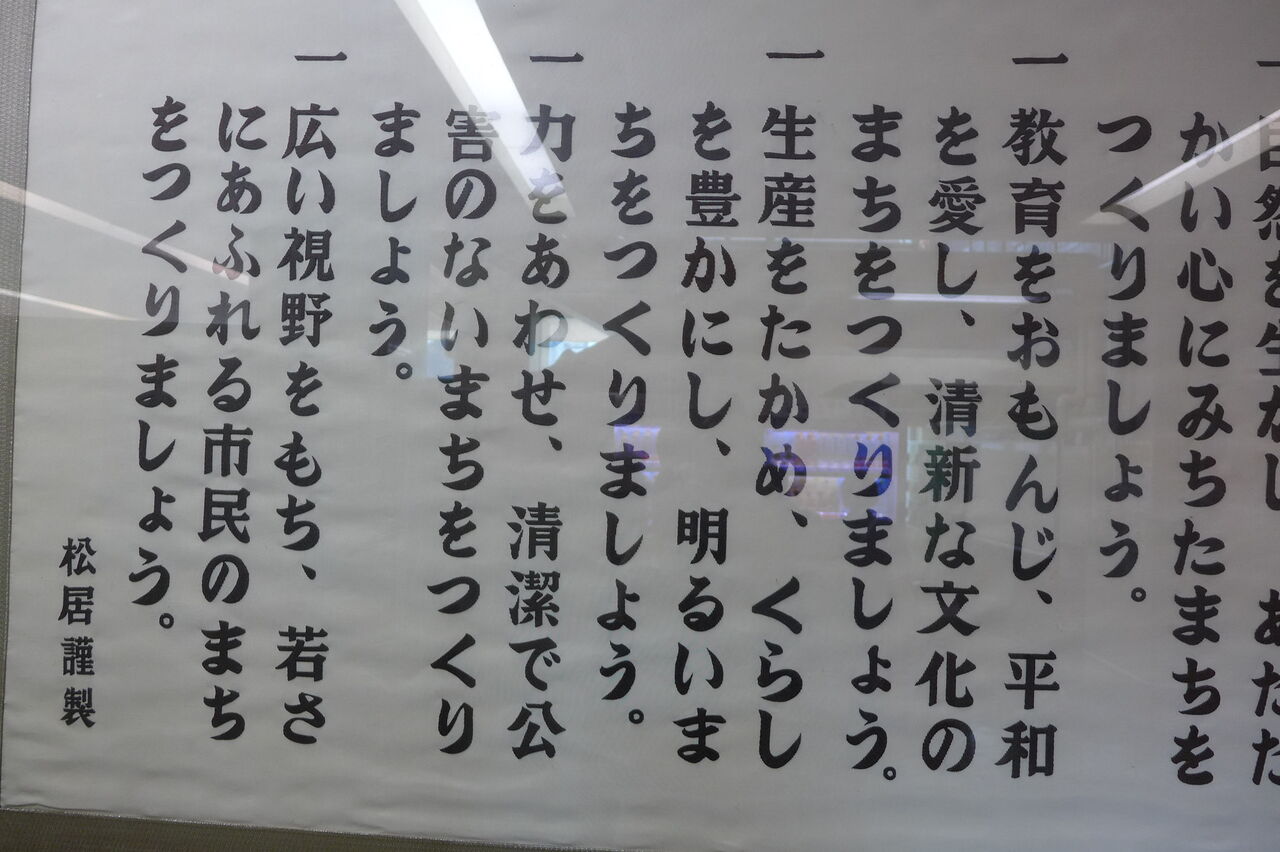 一 自然を生かし あたた
かい心にみちたまちを
つくりましょう。
一 教育をおもんじ、平和
を愛し、清新な文化の
まちをつくりましょう。
一 生産をたかめ、くらし
を豊かにし、明るいま
ちをつくりましょう。
一 力をあわせ、清潔で公
害のないまちをつくり
ましょう。
一 広い視野をもち、若さ
にあふれる市民のまち
をつくりましょう。
松居謹製